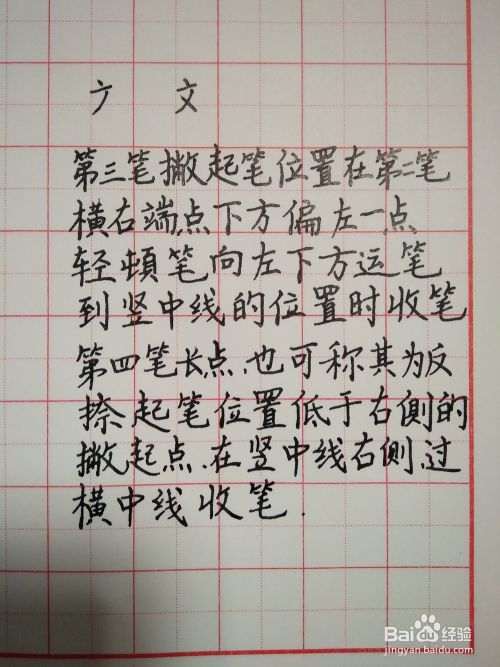 亠丿 文
第三笔撇起笔位置在第二笔
横右端点下方偏左一点
轻頓笔向左下方运笔
到竖中线的位置时收笔
第四笔长点.也可称其为反
捺起笔位置低于右侧的
撇起点.在竖中线右侧.过
横中线收笔.
Baidu经验
jingyan.baidu.com